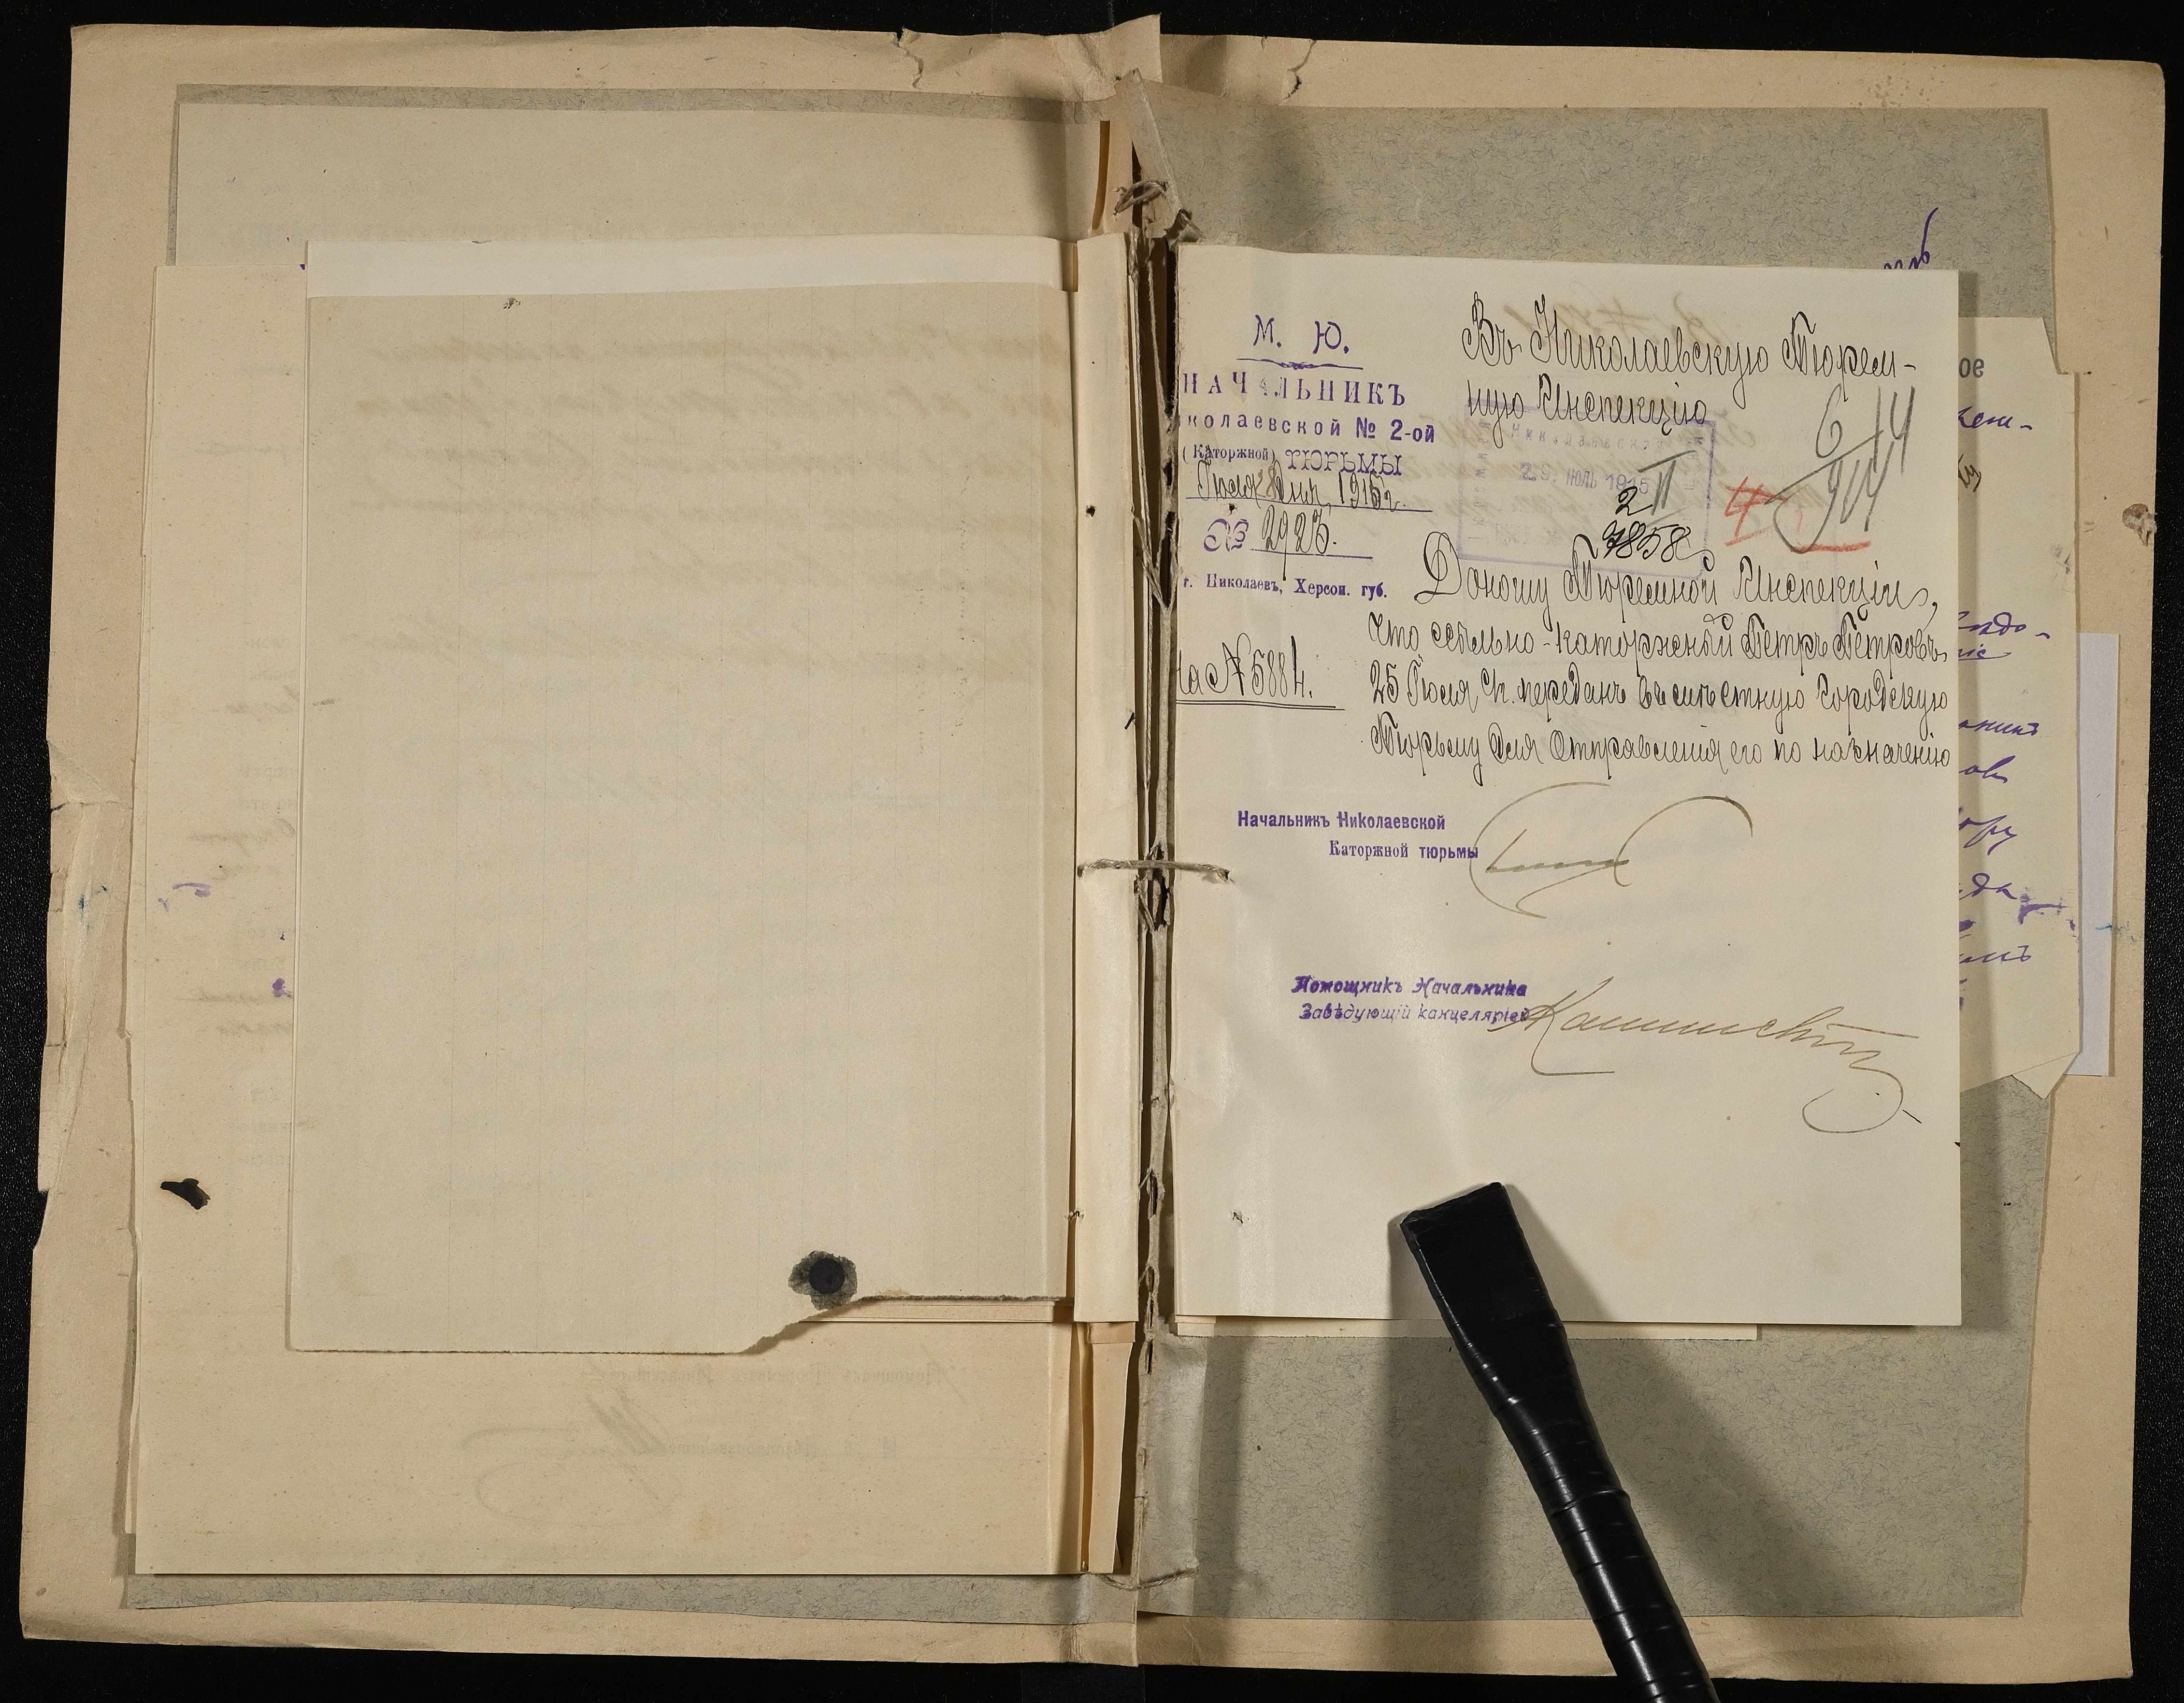 М. Ю.
НАЧАЛЬНИКЪ
колаевской № 2-ой
(Каторжной) ТЮРЬМЫ
Іюля 28 дня, 1915 г.
№ 2923.
г. Николаевъ, Херсон. губ.
на № 5884.
Въ Николаевскую Тюрем-
ную Инспекцію
29 ІЮЛЬ 1915
2 II
7858
4
Доношу Тюремной Инспекціи,
что ссыльно-каторжный Петръ Петровъ
25 Іюля с/г. переданъ въ мѣстную городскую
Тюрьму для отправленія его по назначенію
Начальникъ Николаевской
Каторжной тюрьмы
Помощникъ Начальника
Завѣдующій канцеляріей
ое